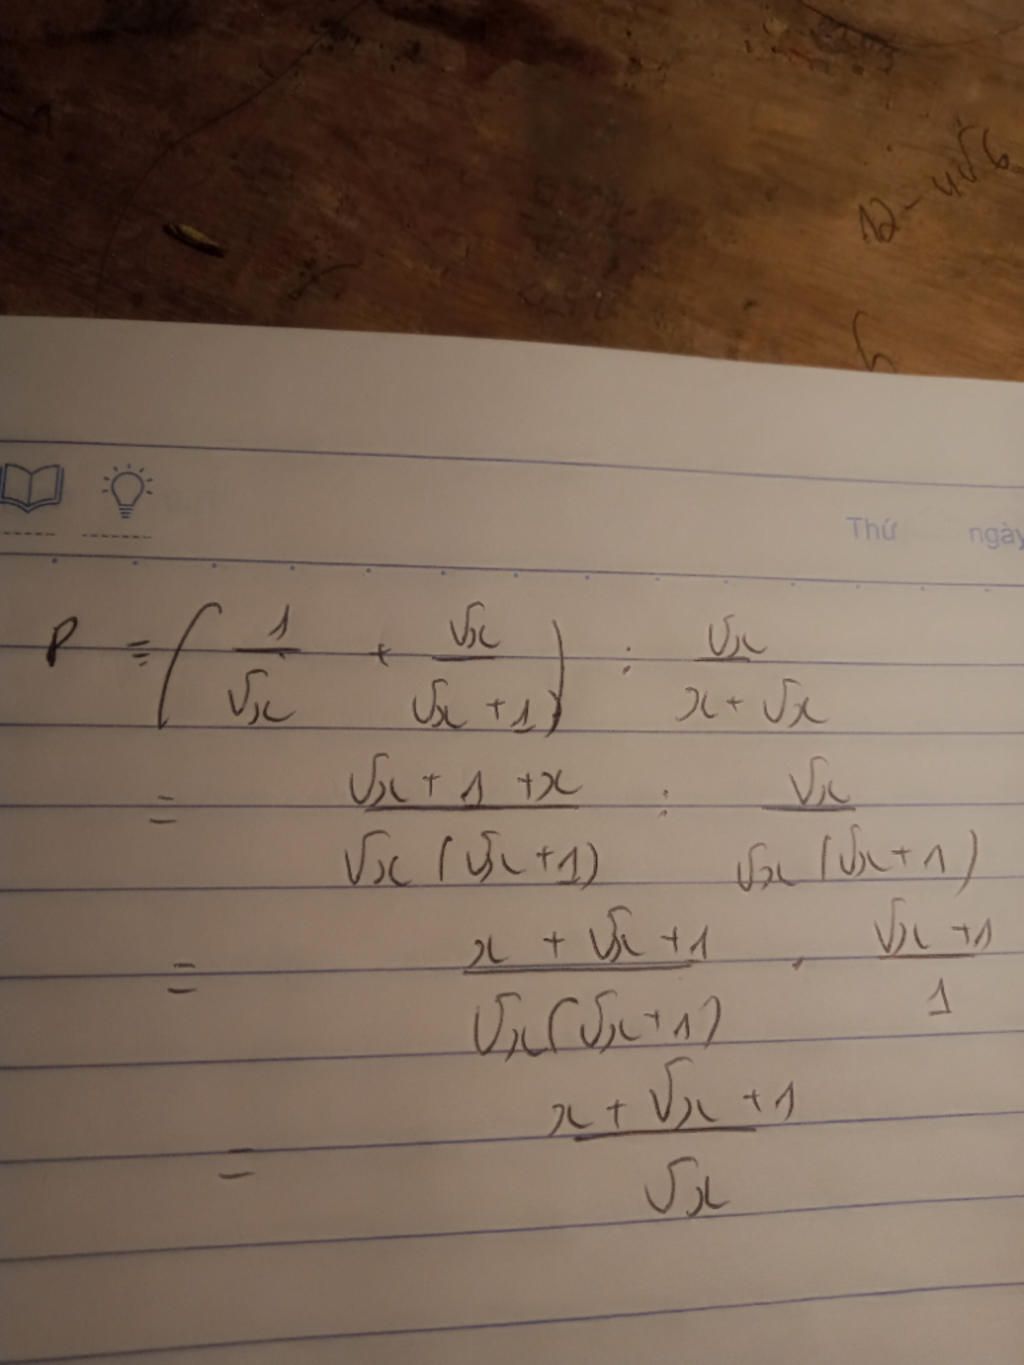 12 - 4√6
Thứ ngày
P = (1/√x + √x/(√x + 1)) : √x/(x + √x)
= (√x + 1 + x)/(√x (√x + 1)) : √x/(√x (√x + 1))
= (x + √x + 1)/(√x (√x + 1)) . (√x + 1)/1
= (x + √x + 1)/√x